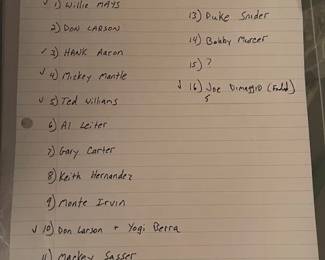 ✓ 1) Willie MAYS
2) DON LARSON
✓ 3) HANK Aaron
✓ 4) Mickey Mantle
✓ 5) Ted Williams
6) Al Leiter
7) Gary Carter
8) Keith Hernandez
9) Monte Irvin
✓ 10) Don Larson + Yogi Berra
11) Mackey Sasser
13) Duke Snider
14) Bobby Murcer
15) ?
✓ 16) Joe Dimaggio (Faded)
5